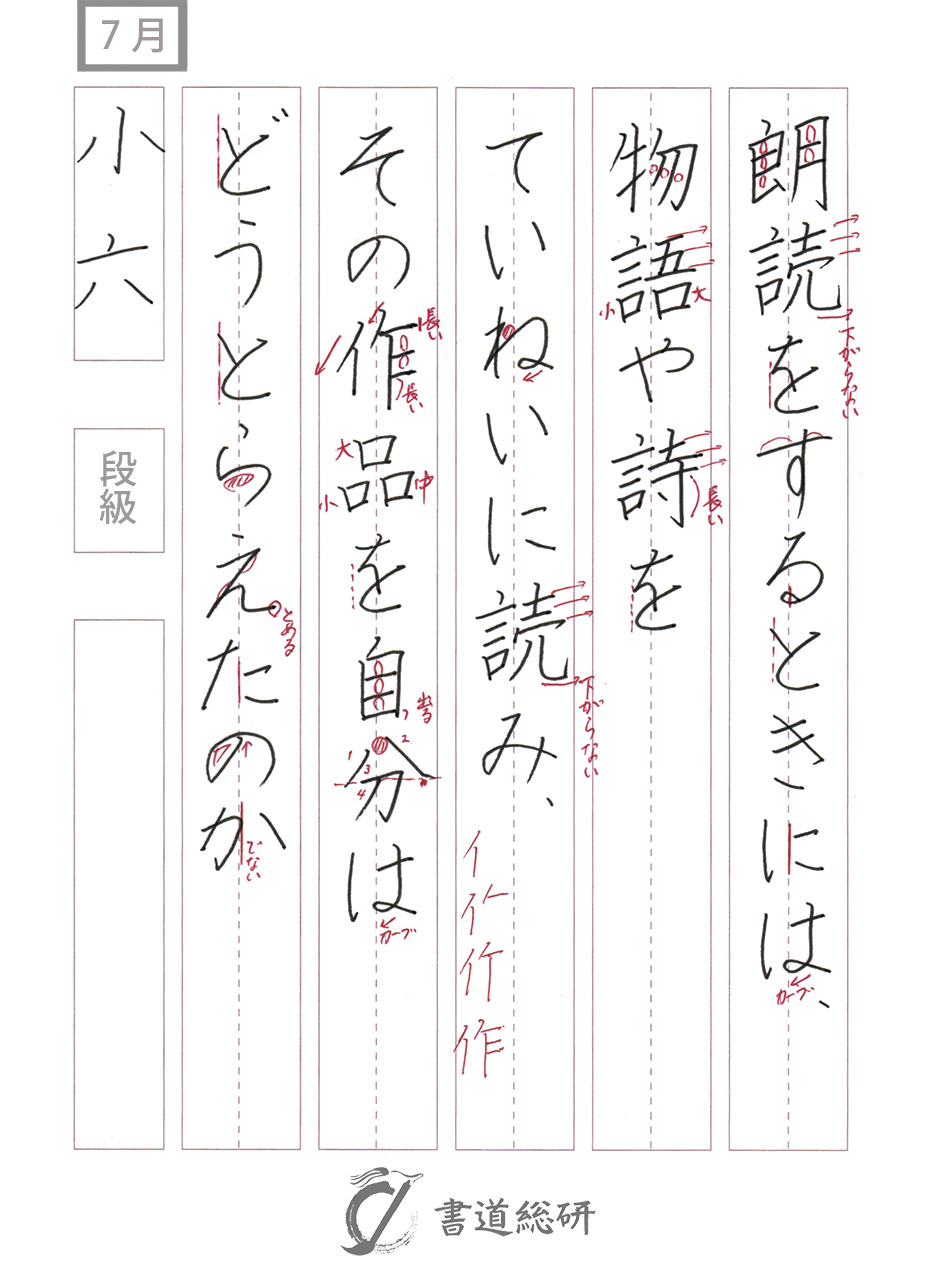 7月
朗読をするときには、
下がらない
カーブ
物語や詩を
小
大
長い
ていねいに読み、
下がらない
イ
作
その作品を自分は
長い
長い
大
小
中
出る
1
2
3
4
カーブ
どうとらえたのか
とめる
でない
小六
段級
書道総研